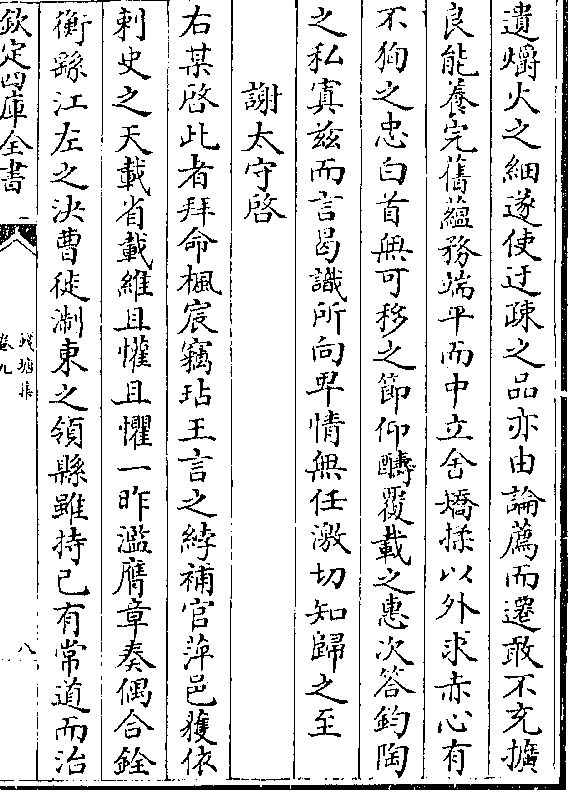 遺爝火之細遂使迂疎之品亦由論薦而遷敢不充擴
良能養完舊蘊務端平而中立舍矯揉以外求赤心有
不狥之忠白首無可移之節仰醻覆載之惠次答鈞陶
之私寘兹而言曷識所向卑情無任激切知歸之至
謝太守啓
右某啓此者拜命楓宸竊玷王言之綍補官萍邑獲依
刺史之天載省載維且懽且懼一昨濫膺章奏偶合銓
衡繇江左之決曹徙淛東之領縣雖持己有常道而治
欽定四庫全書
錢塘集
卷九
八